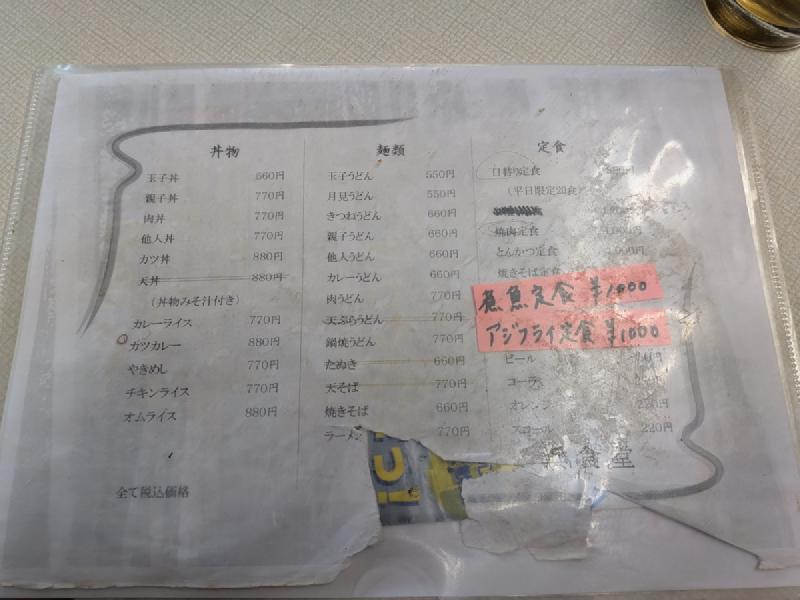 丼物
玉子丼 660円
親子丼 770円
肉丼 770円
他人丼 770円
カツ丼 880円
天丼 880円
（丼物みそ汁付き）
カレーライス 770円
カツカレー 880円
やきめし 770円
チキンライス 770円
オムライス 880円
全て税込価格
麺類
玉子うどん 550円
月見うどん 550円
きつねうどん 660円
親子うどん 660円
他人うどん 660円
カレーうどん 660円
肉うどん 770円
天ぷらうどん 770円
鍋焼うどん 770円
たぬき 660円
天そば 770円
焼きそば 660円
ラーメン 770円
定食
日替り定食
（平日限定20食）
焼肉定食
とんかつ定食
焼きそば定食
煮魚定食 ¥1000
アジフライ定食 ¥1000
ビール
コーラ
オレンジ 220円
スコール 220円
食堂